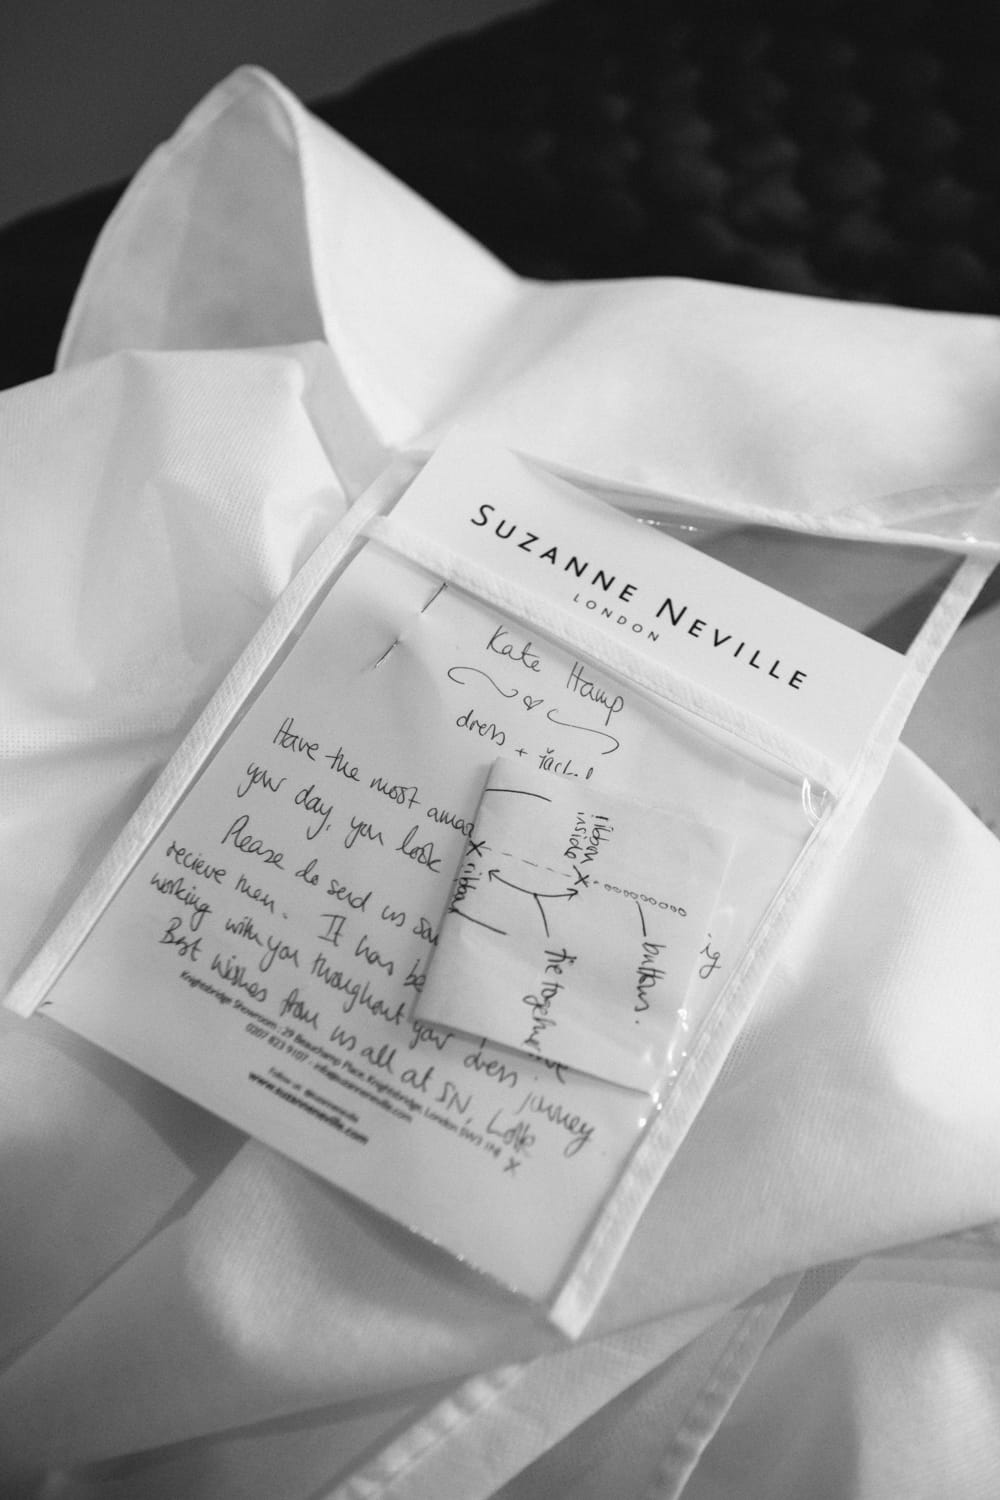 SUZANNE NEVILLE
LONDON
Kate Hamp
dress +
Have the most
your day, you look
Please do send us
recieve them. It has
working with you throughout your dress journey
Best wishes from us all at SN,
x
Knightsbridge Showroom : 29 Beauchamp Place, Knightsbridge, London SW3 1NJ
0207 823 9107 - info@suzanneneville.com
Follow us @suzanneneville
www.suzanneneville.com
ribbon
inside
x
x ribbon
tie together
buttons.